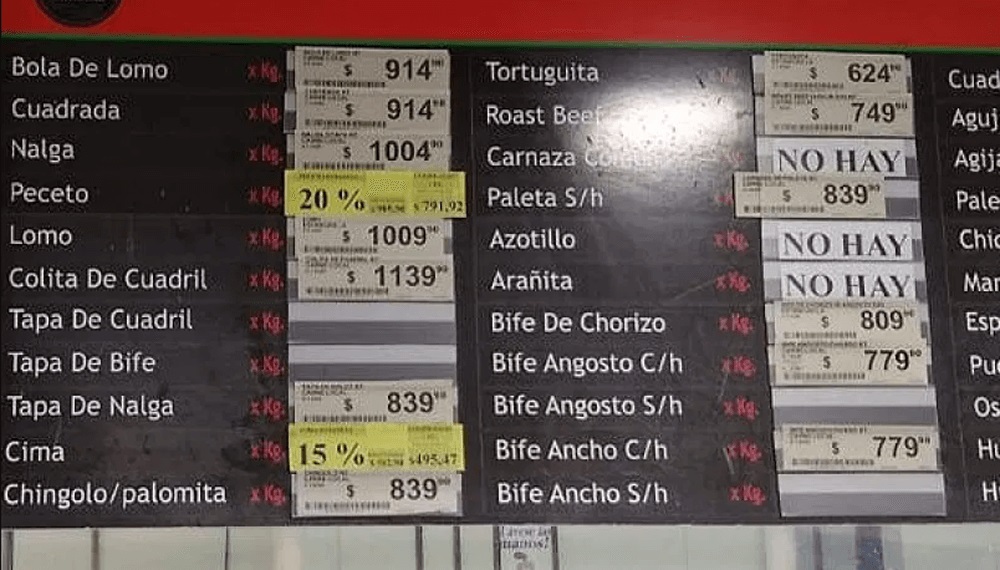 Bola De Lomo x Kg. $ 914⁹⁰
Cuadrada x Kg. $ 914⁹⁰
Nalga x Kg. $ 1004⁹⁰
Peceto x Kg. 20 % $791,92
Lomo x Kg. $ 1009⁹⁰
Colita De Cuadril x Kg. $ 1139⁹⁰
Tapa De Cuadril x Kg.
Tapa De Bife x Kg.
Tapa De Nalga x Kg. $ 839⁹⁰
Cima x Kg. 15 % $495,47
Chingolo/palomita x Kg. $ 839⁹⁰
Tortuguita $ 624⁹⁰
Roast Beef $ 749⁹⁰
Carnaza NO HAY
Paleta S/h $ 839⁹⁰
Azotillo x Kg. NO HAY
Arañita x Kg. NO HAY
Bife De Chorizo x Kg. $ 809⁹⁰
Bife Angosto C/h x Kg. $ 779⁹⁰
Bife Angosto S/h x Kg.
Bife Ancho C/h x Kg. $ 779⁹⁰
Bife Ancho S/h x Kg.
Cuad
Aguj
Agij
Pale
Chic
Mar
Esp
Puc
Os
Hu
H
manos!